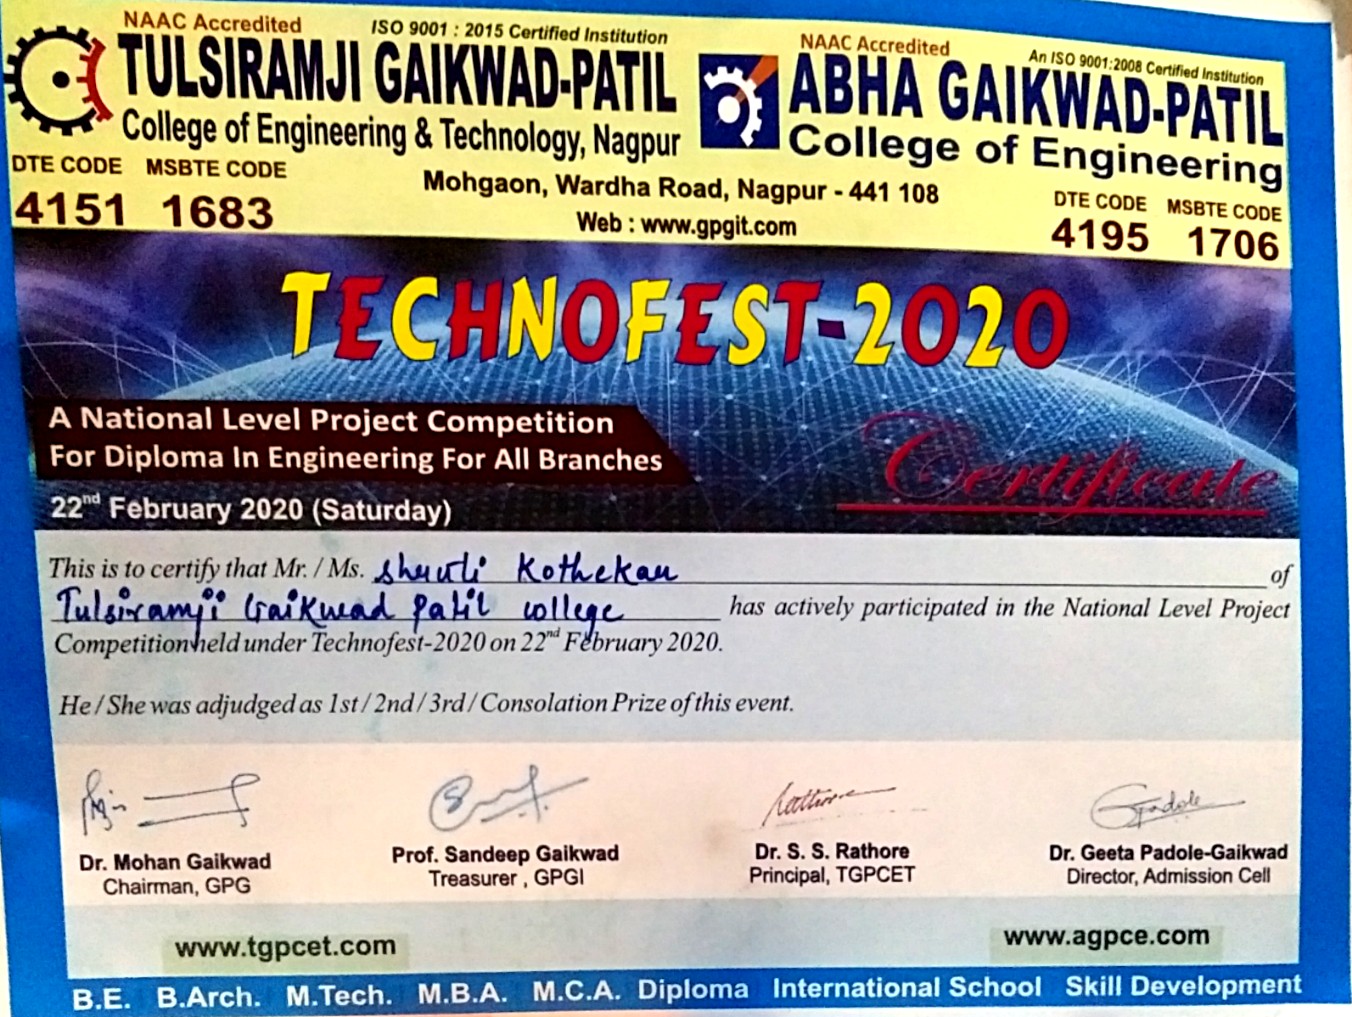 NAAC Accredited
ISO 9001 : 2015 Certified Institution
TULSIRAMJI GAIKWAD-PATIL
College of Engineering & Technology, Nagpur
DTE CODE MSBTE CODE
4151 1683
NAAC Accredited
An ISO 9001:2008 Certified Institution
ABHA GAIKWAD-PATIL
College of Engineering
DTE CODE MSBTE CODE
4195 1706
Mohgaon, Wardha Road, Nagpur - 441 108
Web : www.gpgit.com
TECHNOFEST-2020
A National Level Project Competition
For Diploma In Engineering For All Branches
22nd February 2020 (Saturday)
Certificate
This is to certify that Mr. / Ms. Kothekar of
Tulsiramji Gaikwad Patil college has actively participated in the National Level Project
Competition held under Technofest-2020 on 22nd February 2020.
He / She was adjudged as 1st / 2nd / 3rd / Consolation Prize of this event.
Rathore
GPadole
Dr. Mohan Gaikwad
Chairman, GPG
Prof. Sandeep Gaikwad
Treasurer , GPGI
Dr. S. S. Rathore
Principal, TGPCET
Dr. Geeta Padole-Gaikwad
Director, Admission Cell
www.tgpcet.com
www.agpce.com
B.E. B.Arch. M.Tech. M.B.A. M.C.A. Diploma International School Skill Development